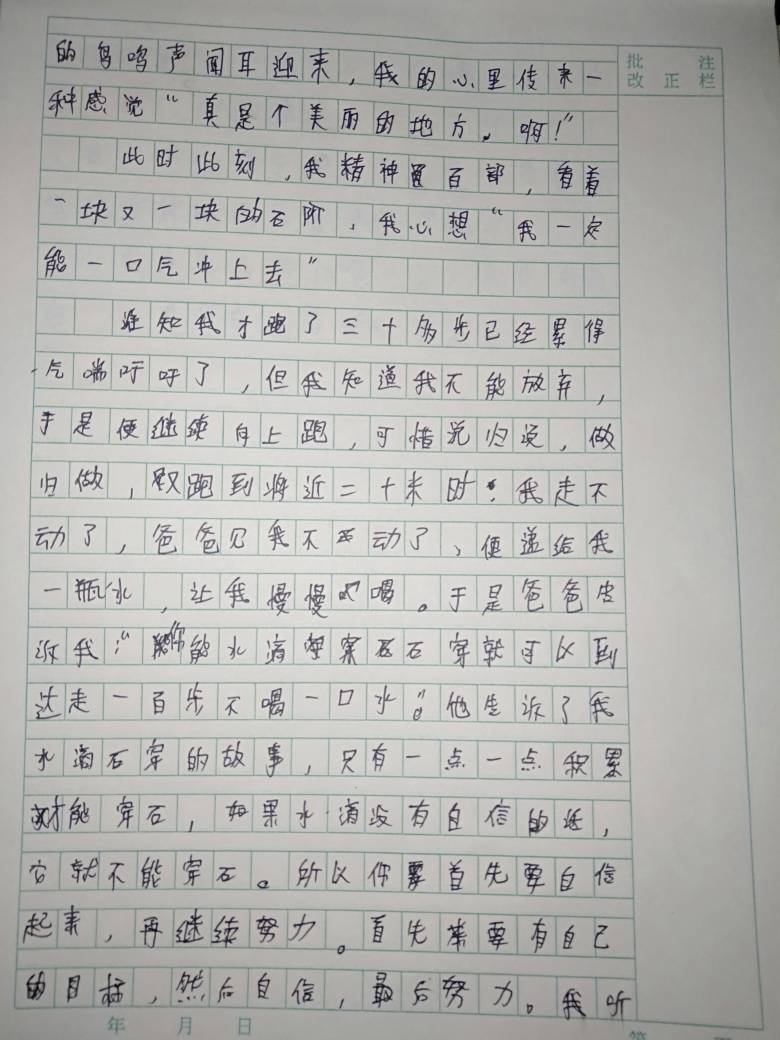 批 注
改 正 栏
的鸟鸣声闻耳迎来，我的心里传来一
种感觉“真是个美丽的地方。啊！”
此时此刻，我精神百部，看着
一块又一块的石阶，我心想“我一定
能一口气冲上去”
谁知我才跑了三十多步已经累得
气喘吁吁了，但我知道我不能放弃，
于是便继续向上跑，可惜说归说，做
归做，跑到将近二十米时，我走不
动了，爸爸见我不动了，便递给我
一瓶水，让我慢慢喝。于是爸爸
我：“你能水滴石穿就可以到
达走一百步不喝一口水”。他了我
水滴石穿的故事，只有一点一点积累
才能穿石，如果水滴没有自信的话，
它就不能穿石。所以你要首先要自信
起来，再继续努力。首先要有自己
的目标，然后自信，最后努力。我听
年 月 日